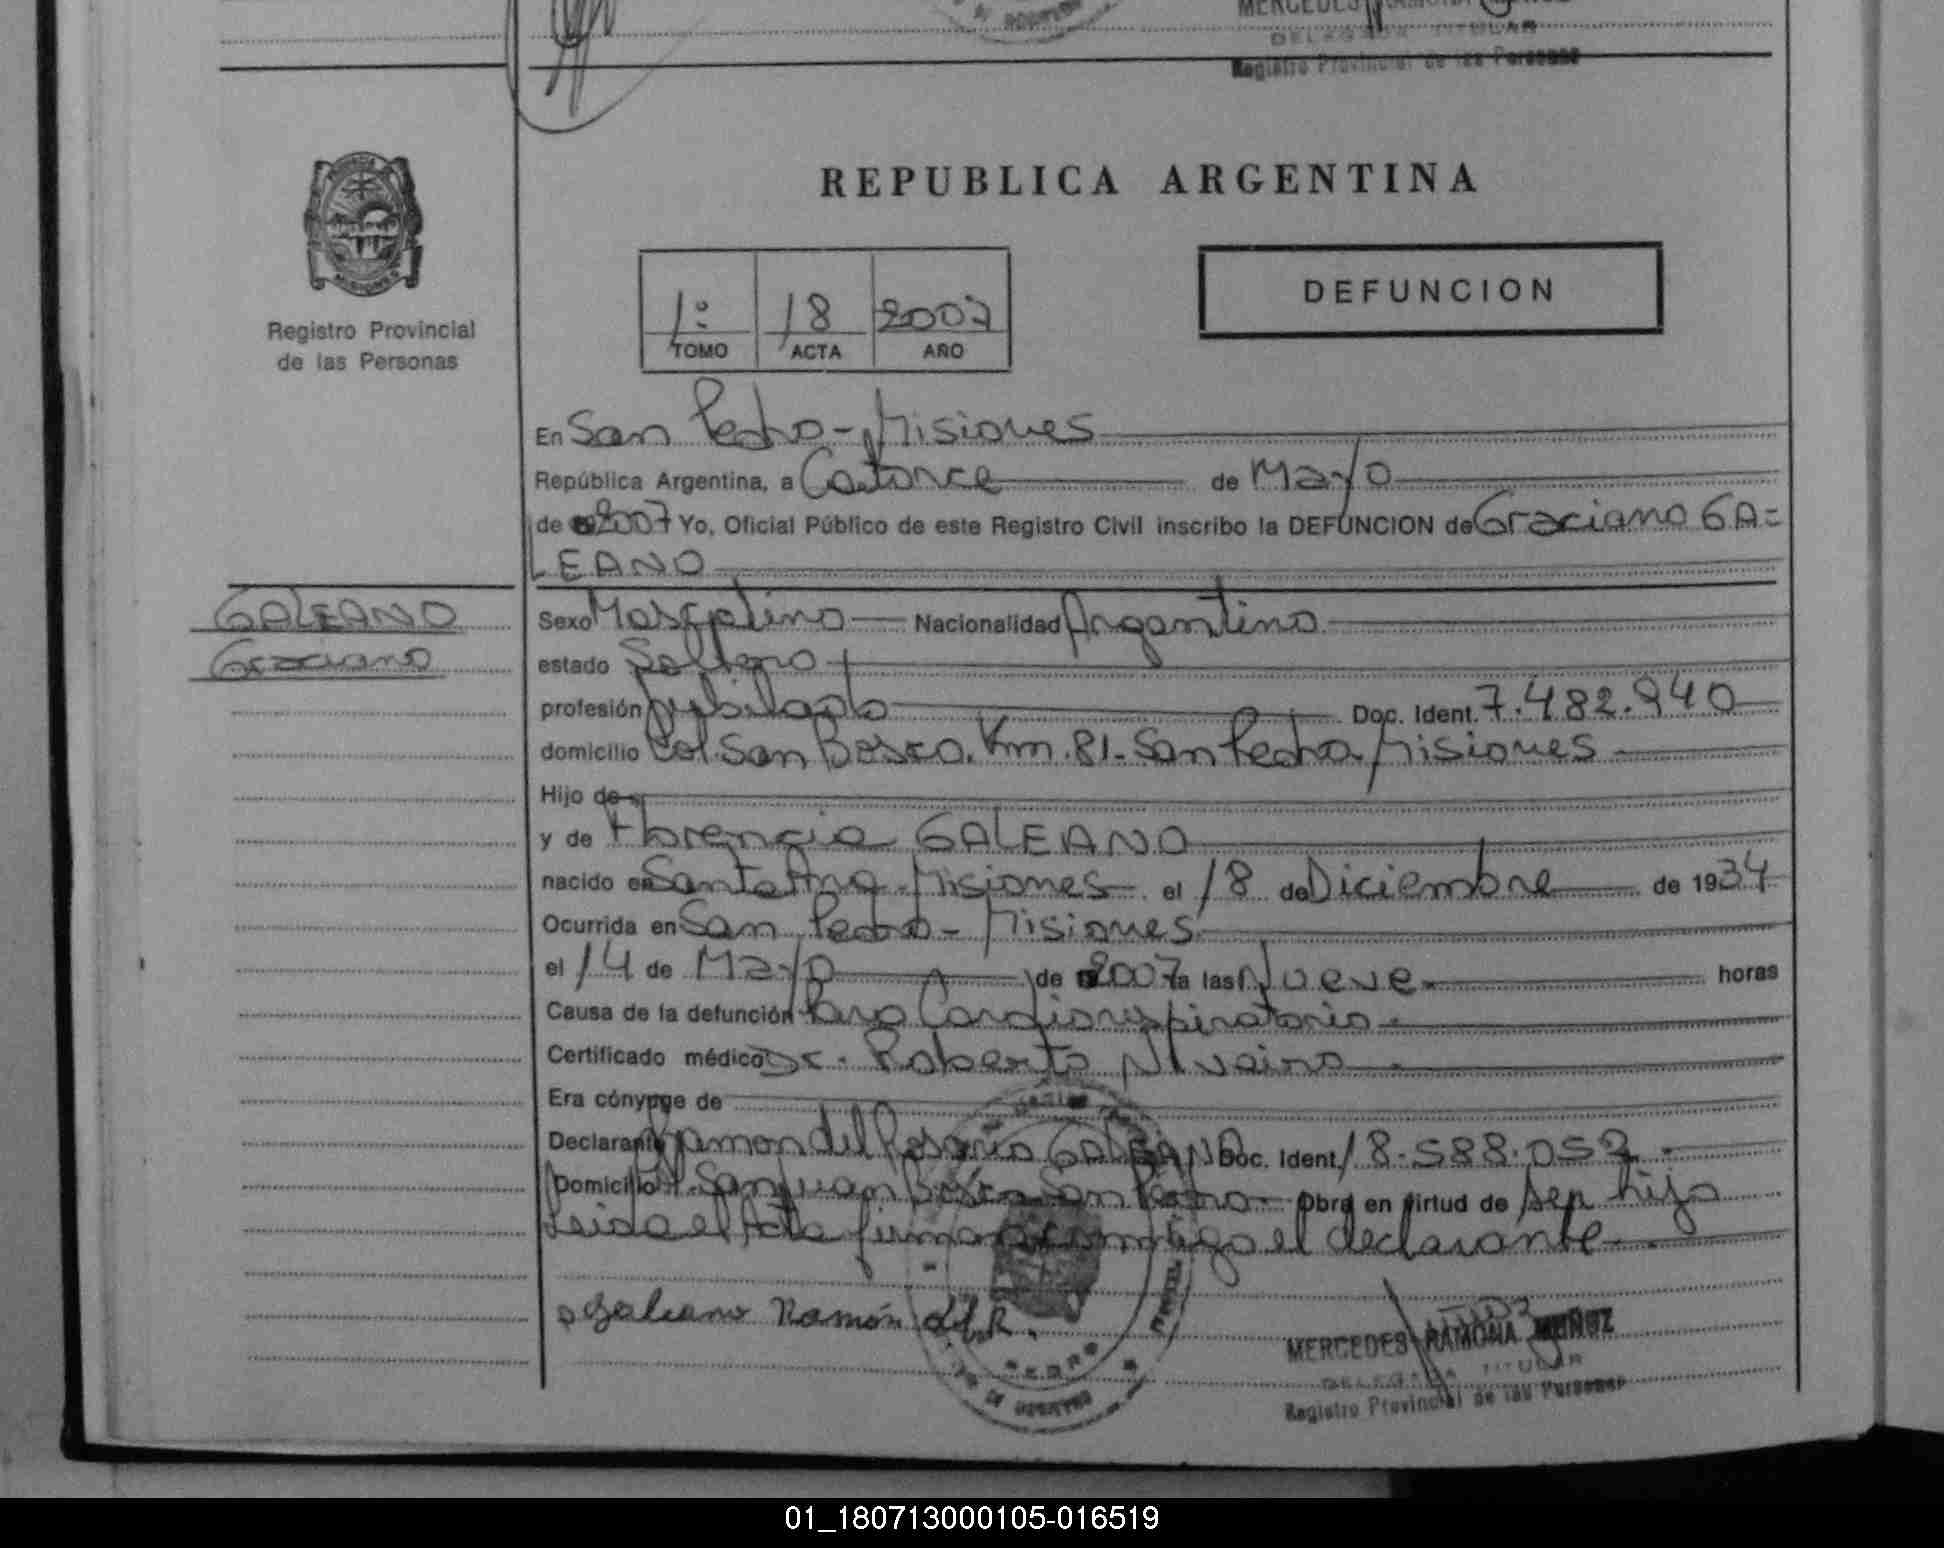 MERCEDES RAMONA MUÑOZ
DELEGADA TITULAR
Registro Provincial de las Personas
REPUBLICA ARGENTINA
DEFUNCION
1º 18 2007
TOMO ACTA AÑO
MISIONES
Registro Provincial
de las Personas
En San Pedro - Misiones
República Argentina, a Catorce de Mayo
de 2007 Yo, Oficial Público de este Registro Civil inscribo la DEFUNCION de Graciano GA=
LEANO
GALEANO
Graciano
Sexo Masculino Nacionalidad Argentino
estado Soltero
profesión Jubilado Doc. Ident. 7.482.940
domicilio Col. San Bosco. Km. 81 - San Pedro Misiones
Hijo de
y de Florencia GALEANO
nacido en Santa Ana - Misiones el 18 de Diciembre de 1934
Ocurrida en San Pedro - Misiones
el 14 de Mayo de 2007 a las Nueve horas
Causa de la defunción Paro Cardiorrespiratorio
Certificado médico Dr. Roberto
Era cónyuge de
Declarante Ramon del Rosario GALEANO Doc. Ident. 18.588.052
Domicilio Col. San Juan Bosco San Pedro Obra en virtud de ser hijo
Leida el Acta firman conmigo el declarante
Galeano Ramón del R.
PEDRO
MERCEDES RAMONA MUÑOZ
DELEGADA TITULAR
Registro Provincial de las Personas
01_180713000105-016519